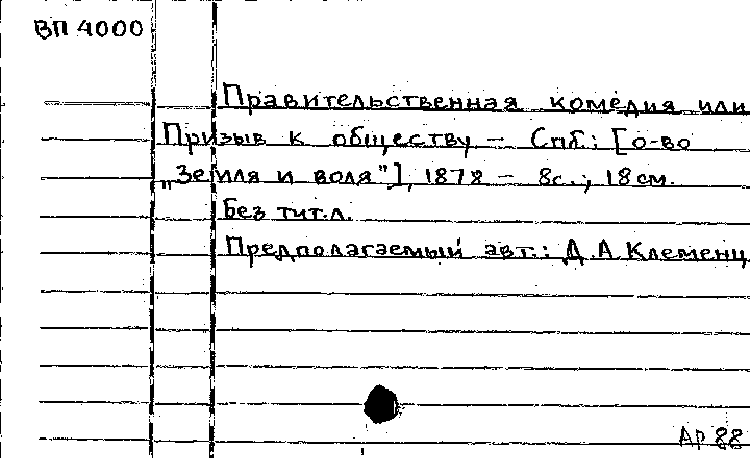 ВП 4000
Правительственная комедия или
Призыв к обществу – Спб.: [о-во
„Земля и воля"], 1878 – 8с.; 18см.
Без тит.л.
Предполагаемый авт.: Д.А Клеменц
Ар 88